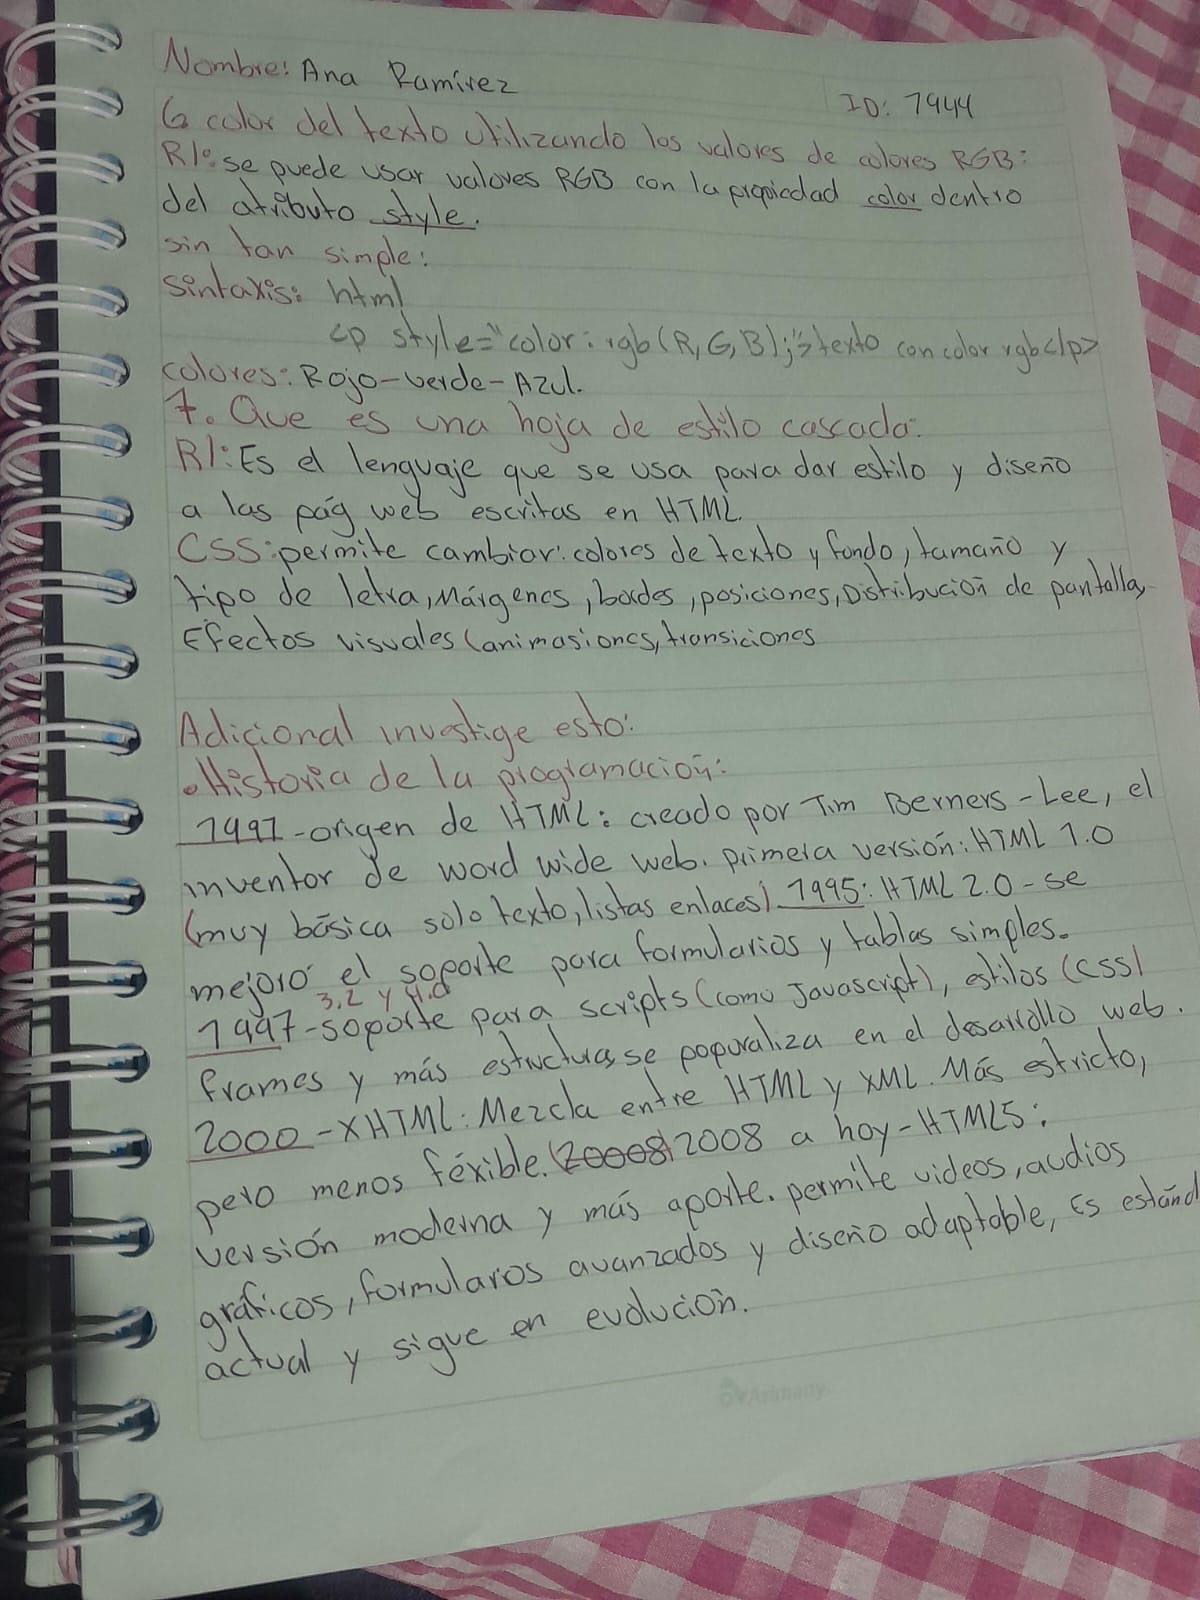 Nombre: Ana Ramírez
ID: 7944
6 color del texto utilizando los valores de colores RGB:
R/: se puede usar valores RGB con la propiedad color dentro
del atributo style.
sin tan simple:
sintaxis: html
<p style="color: rgb(R,G,B);">texto con color rgb</p>
colores: Rojo-verde-Azul.
7. Que es una hoja de estilo cascada:
R/: Es el lenguaje que se usa para dar estilo y diseño
a las pág web escritas en HTML.
CSS: permite cambiar: colores de texto y fondo, tamaño y
tipo de letra, Márgenes, bordes, posiciones, Distribución de pantalla,
Efectos visuales (animasiones, transiciones
Adicional investige esto:
• Historia de la programación:
1991-origen de HTML: creado por Tim Berners-Lee, el
inventor de word wide web. primera versión: HTML 1.0
(muy básica solo texto, listas enlaces). 1995: HTML 2.0-se
mejoró el soporte para formularios y tablas simples.
3.2 y 4.0
1997-soporte para scripts (como Javascript), estilos (CSS)
frames y más estructura, se popuraliza en el desarrollo web.
2000-XHTML: Mezcla entre HTML y XML. Más estricto,
pero menos féxible. (20008) 2008 a hoy-HTML5:
versión moderna y más aporte. permite videos, audios
gráficos, formularios avanzados y diseño adaptable, Es estánd
actual y sigue en evolución.
Arimany